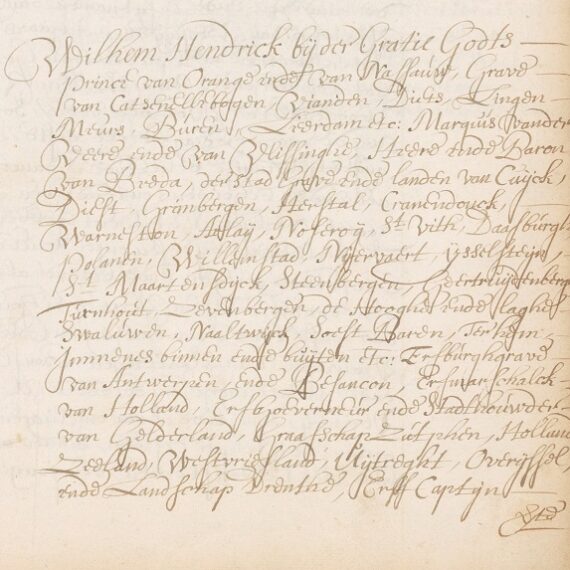 Wilhem Hendrick bij der Gratie Godts
Prince van Orange ende van Nassauw, Grave
van Catsenellebogen, Vianden, Diets, Lingen
Meurs, Buren, Leerdam etc: Marquis vander
Veere ende van Vlissinghe, Heere ende Baron
van Breda, der stad Grave ende landen van Cuijck,
Diest, Grimbergen, Herstal, Cranendonck,
Warneston, Arlaij, Noseroij, St Vith, Daasburgh
Polanen, Willemstad, Nijervaert, ijsselsteijn,
St Maartensdijck, Steenbergen, Geertruijdenberg
Turnhout, Zevenbergen, de Hooghe ende laghe
Swaluwen, Naaltwijck, Soest Baren, Terheim
Immenes binnen ende buijten etc: Erfburghgrave
van Antwerpen, ende Besancon, Erfmarschalck
van Holland, Erfgoeverneur ende Stadthouwder
van Gelderland, Graafschap Zutphen, Holland
Zeeland, Westvriesland, Uijtreght, Overijssel,
ende Landschap Drenthe, Erff Captijn